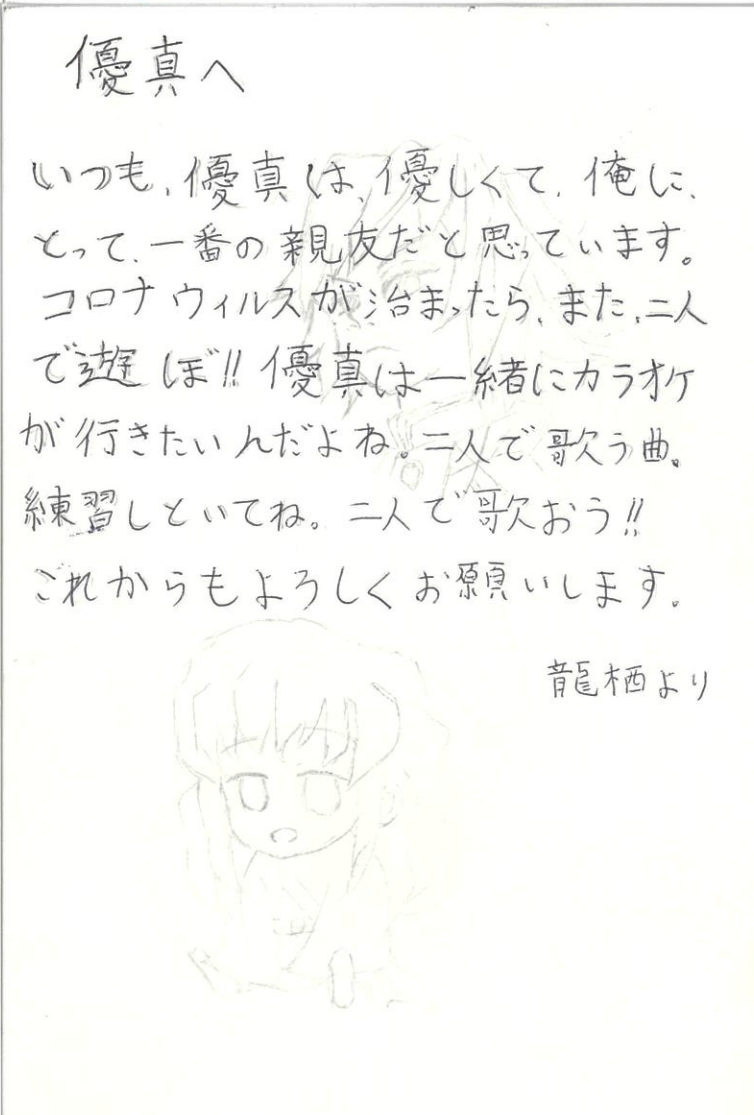 優真へ
いつも、優真は、優しくて、俺に、
とって、一番の親友だと思っています。
コロナウィルスが治まったら、また、二人
で遊ぼ!! 優真は一緒にカラオケ
が行きたいんだよね。二人で歌う曲。
練習しといてね。二人で歌おう!!
これからもよろしくお願いします。
龍栖より